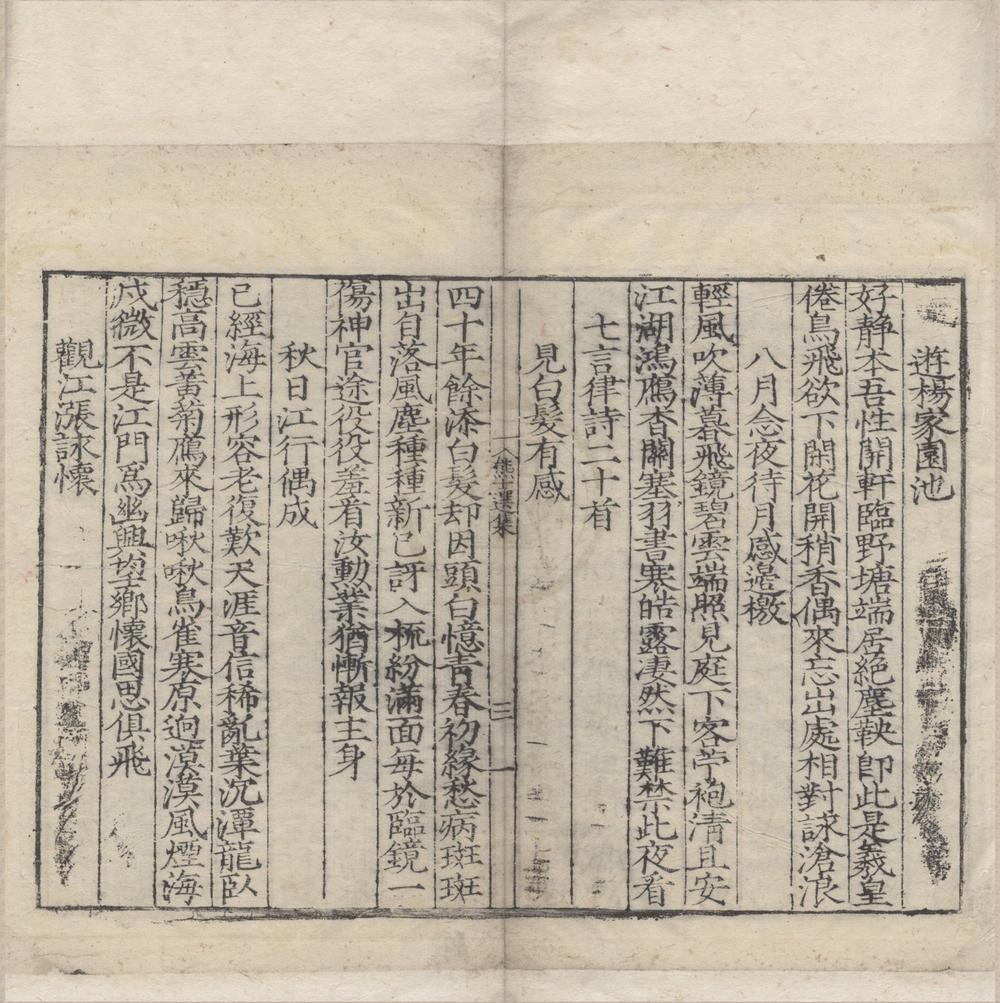 遊楊家園池
好静本吾性開軒臨野塘端居絶塵鞅卽此是羲皇
倦鳥飛欲下閑花開稍香偶來忘出處相對詠滄浪
八月念夜待月感邊檄
輕風吹薄暮飛鏡碧雲端照見庭下客苧袍淸且安
江湖鴻鴈杳關塞羽書寒皓露凄然下難禁此夜看
七言律詩二十首
見白髮有感
選集
三
四十年餘添白髮却因頭白憶青春初緣愁病斑斑
出自落風塵種種新已訝入梳紛滿面每於臨鏡一
傷神官途役役羞看汝勳業猶慚報主身
秋日江行偶成
已經海上形容老復歎天涯音信稀亂葉沉潭龍臥
穩高雲黃菊鴈來歸啾啾鳥雀寒原逈漠漠風煙海
戍微不是江門爲幽興望鄉懷國思俱飛
觀江漲詠懷